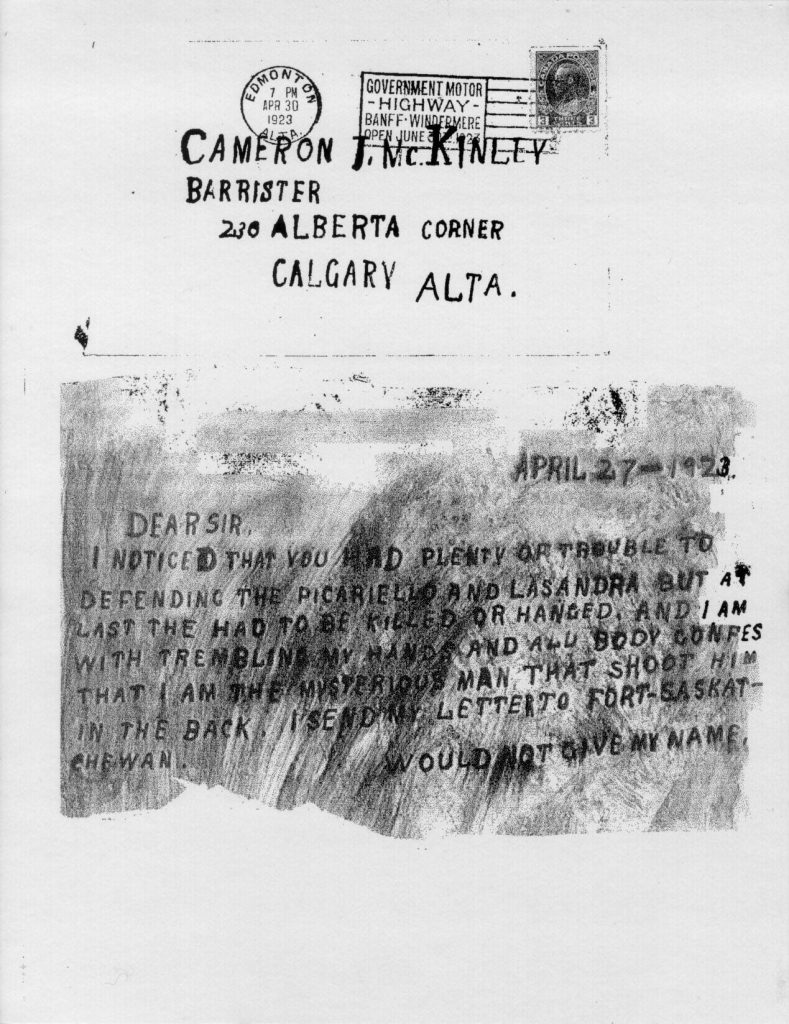 EDMONTON
7 PM
APR 30
1923
ALTA.
GOVERNMENT MOTOR
-HIGHWAY-
BANFF-WINDERMERE
OPEN JUNE
CAMERON J. McKINLEY
BARRISTER
230 ALBERTA CORNER
CALGARY ALTA.
APRIL 27-1923.
DEAR SIR,
I NOTICED THAT YOU HAD PLENTY OF TROUBLE TO
DEFENDING THE PICARIELLO AND LASANDRA BUT AT
LAST THE HAD TO BE KILLED OR HANGED, AND I AM
WITH TREMBLING MY HANDS AND ALL BODY CONFES
THAT I AM THE MYSTERIOUS MAN THAT SHOOT HIM
IN THE BACK. I SEND MY LETTER TO FORT-SASKAT-
CHEWAN. WOULD NOT GIVE MY NAME.